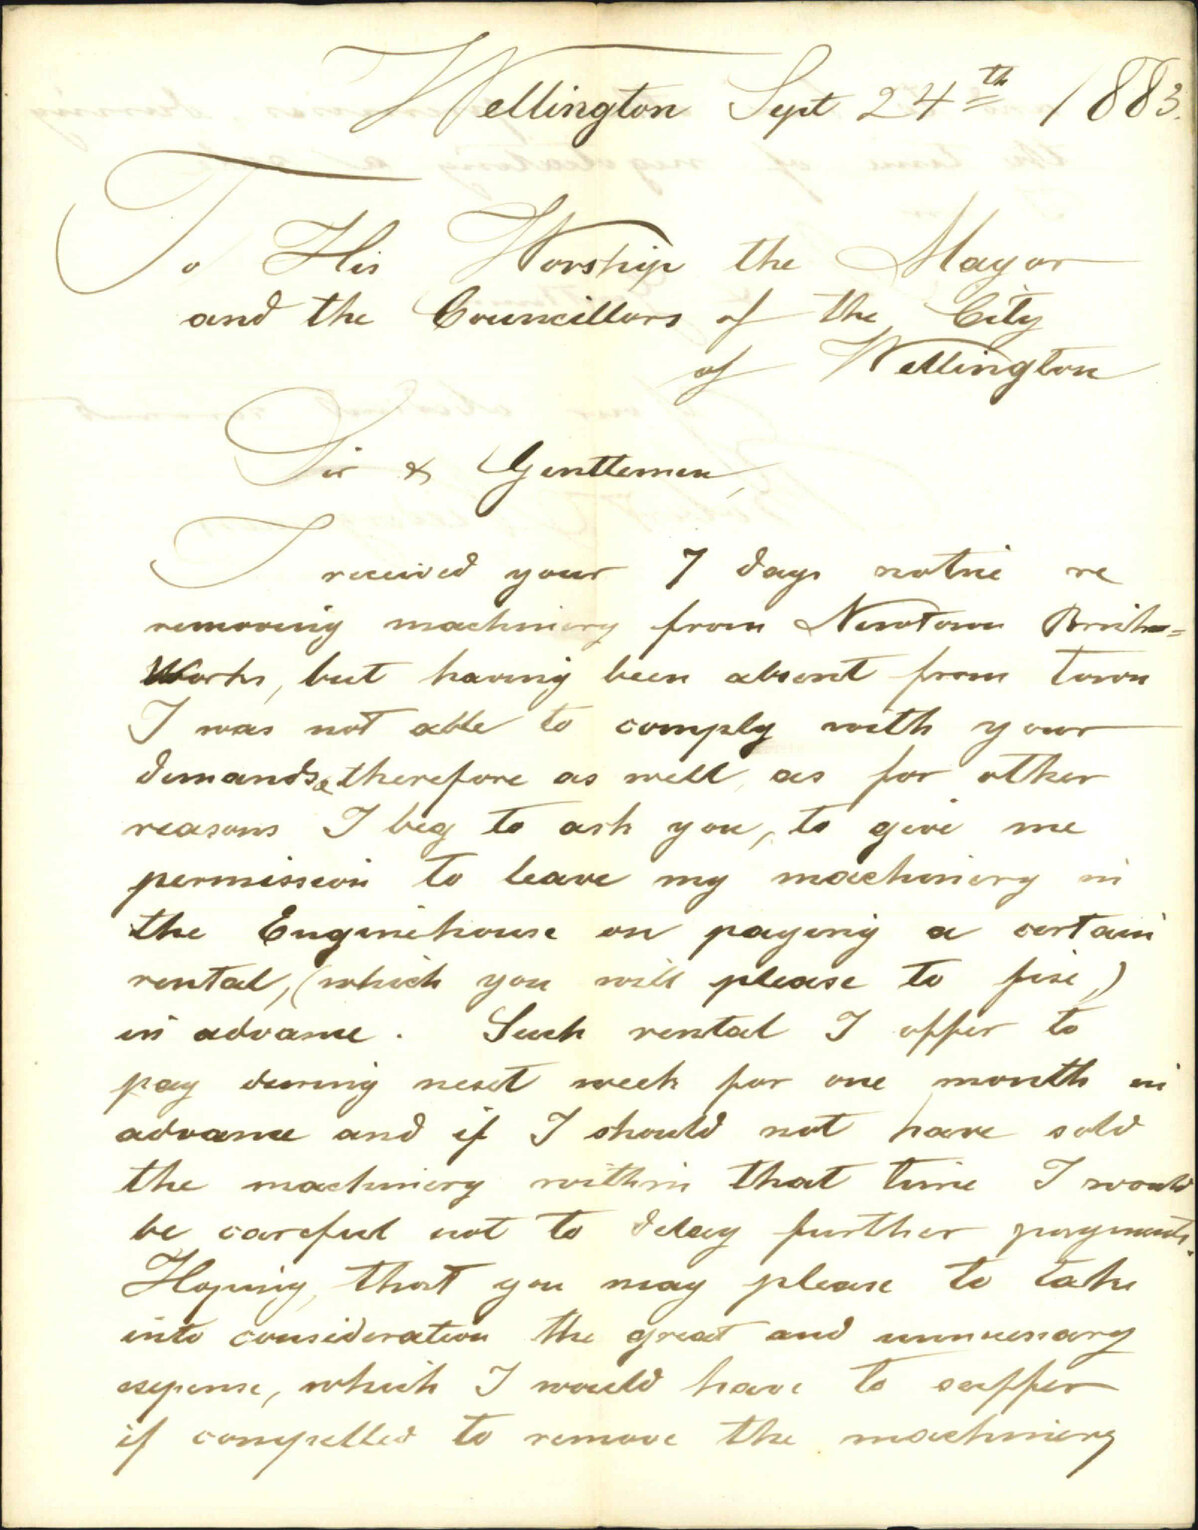 Wellington Sept 24th 1883.
To His Worship the Mayor
and the Councillors of the City
of Wellington
Sir & Gentlemen,
I received your 7 days notice re
removing machinery from Newtown Brick=
Works, but having been absent from town
I was not able to comply with your
demands, & therefore as well as for other
reasons I beg to ask you, to give me
permission to leave my machinery in
the Enginehouse on paying a certain
rental, (which you will please to fix,)
in advance. Such rental I offer to
pay during next week for one month in
advance and if I should not have sold
the machinery within that time I would
be careful not to delay further payments.
Hoping, that you may please to take
into consideration the great and unnecessary
expense, which I would have to suffer
if compelled to remove the machinery